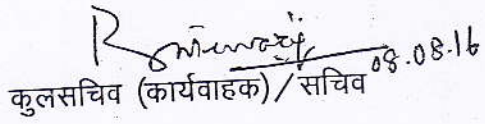 08.08.16
कुलसचिव (कार्यवाहक) / सचिव